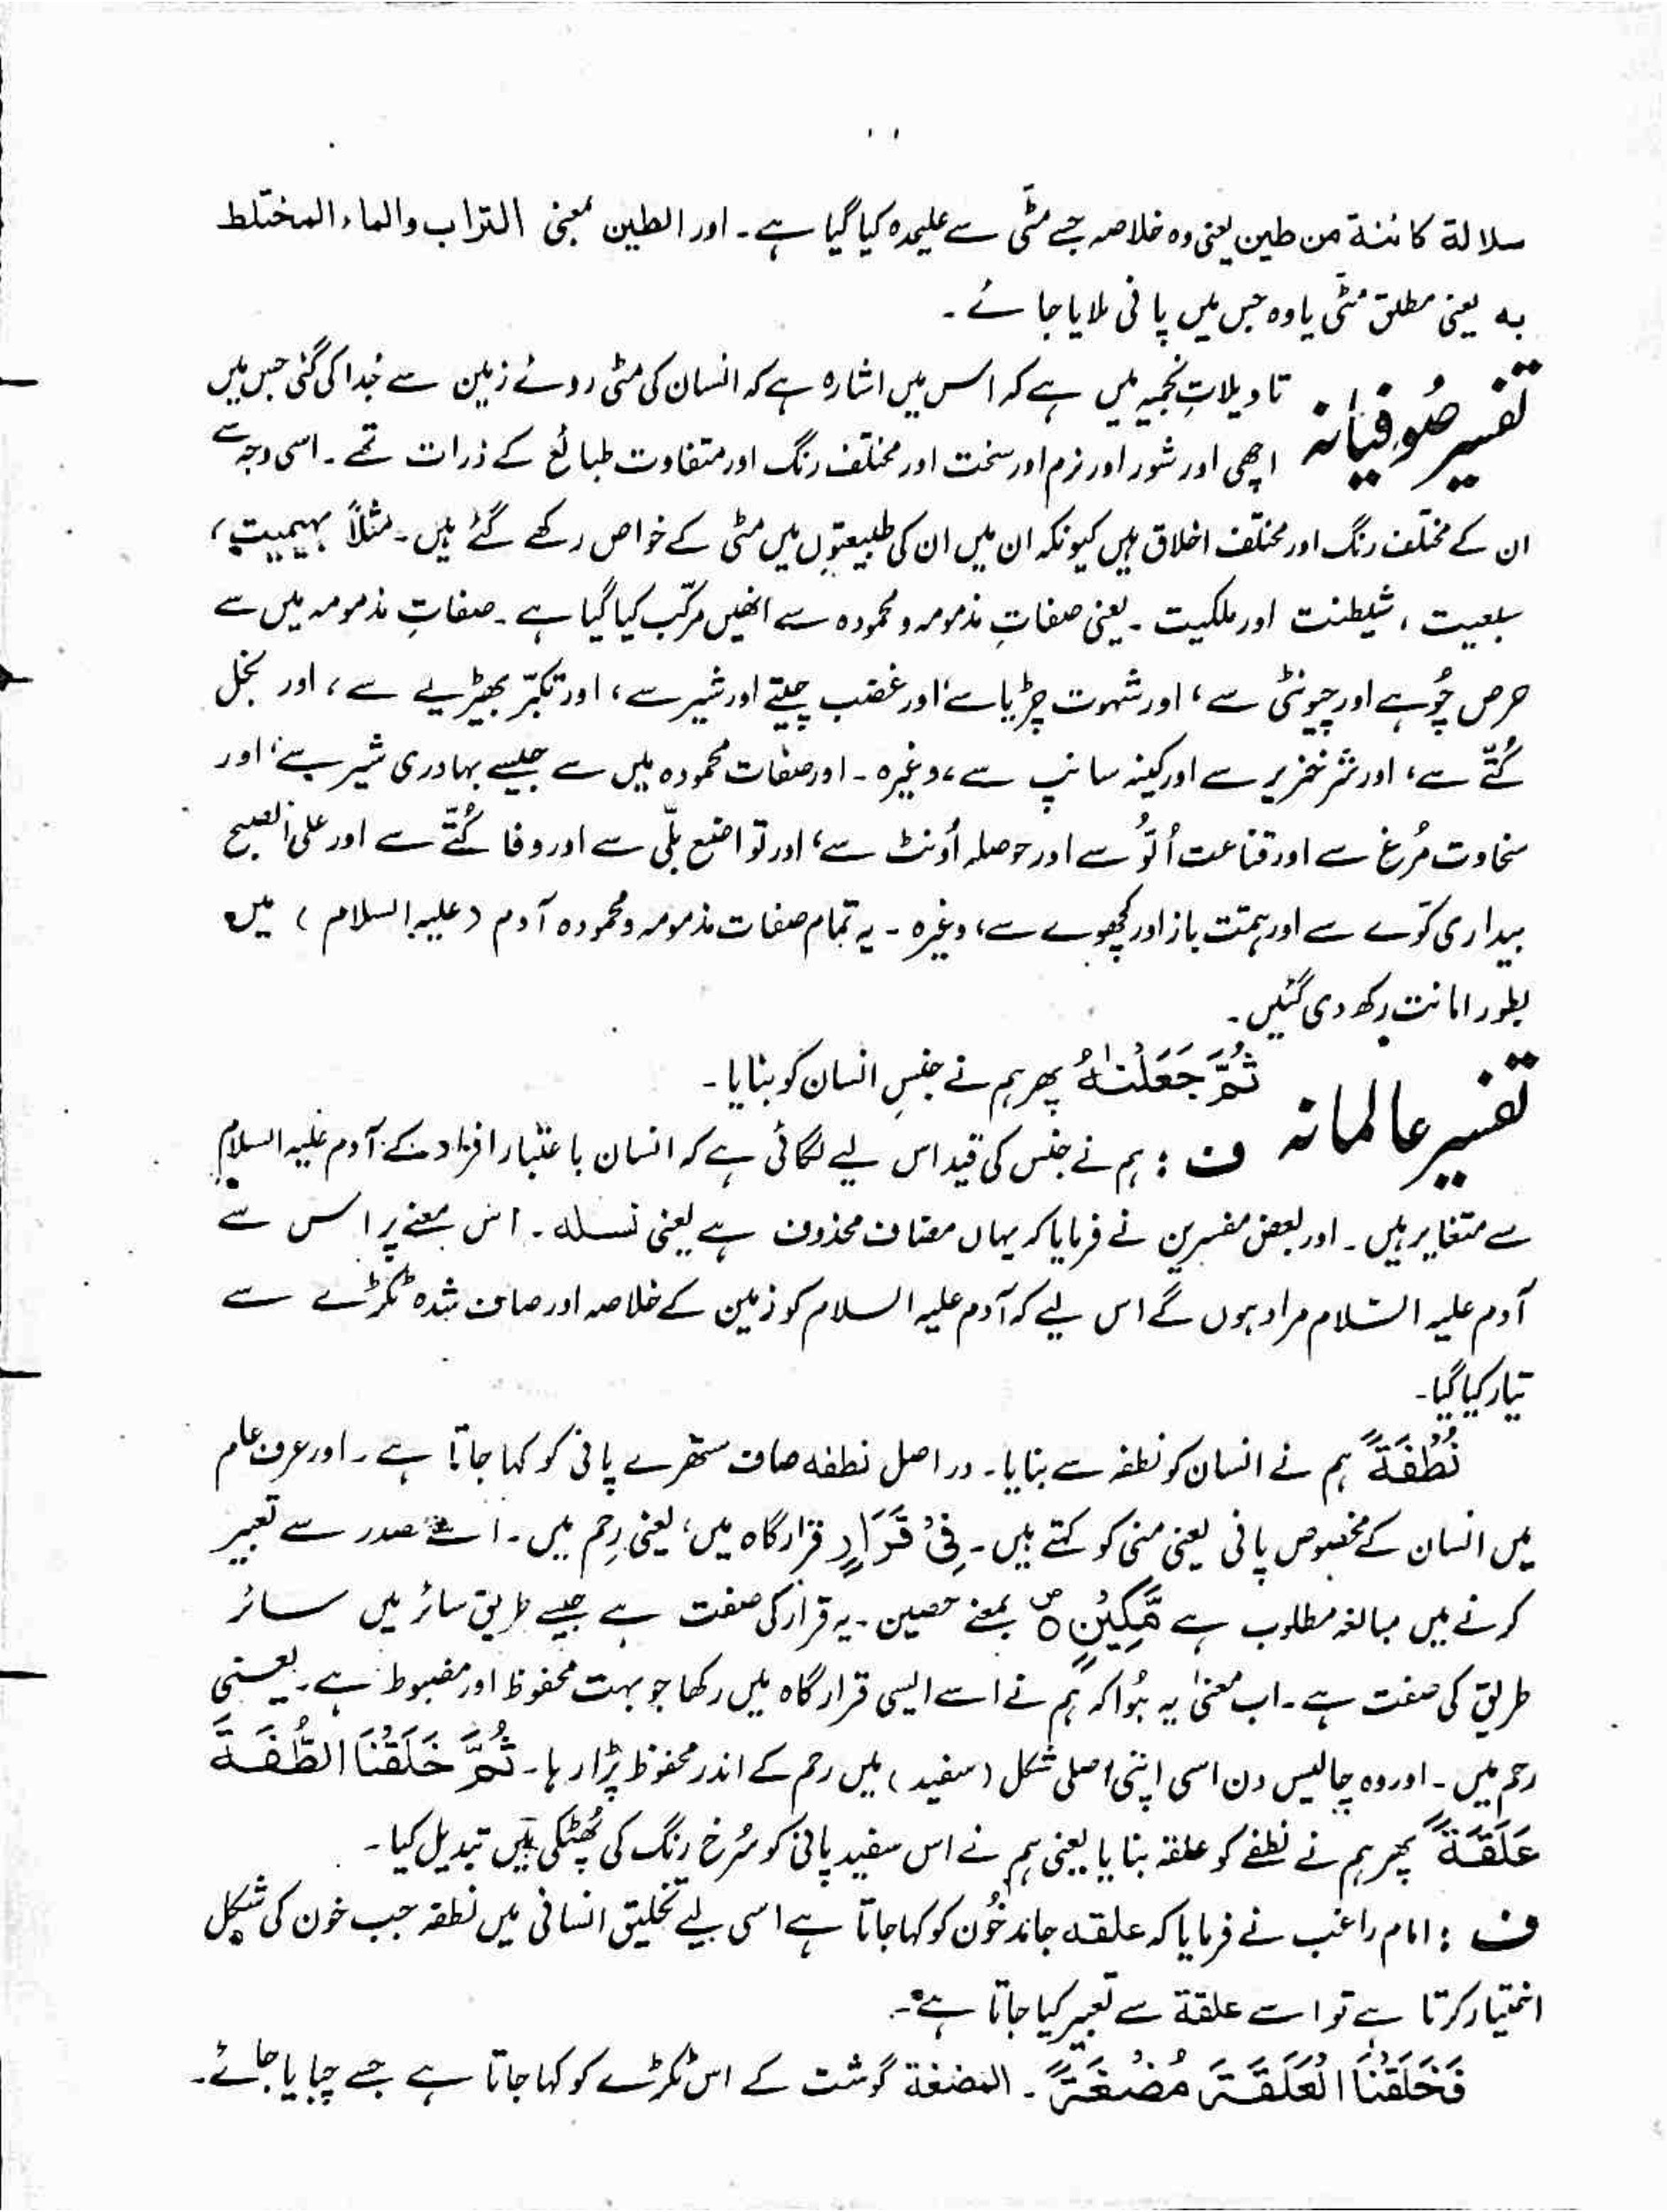 سلالة كائنة من طين یعنی وہ خلاصہ جسے مٹی سے علیحدہ کیا گیا ہے۔ اور الطین بمعنی التراب والماء المختلط
به یعنی مطلق مٹی یا وہ جس میں پانی ملایا جائے۔
تفسیر صوفیانہ تاویلاتِ نجمیہ میں ہے کہ اس میں اشارہ ہے کہ انسان کی مٹی روئے زمین سے جُدا کی گئی جس میں
اچھی اور شور اور نرم اور سخت اور مختلف رنگ اور متفاوت طبائع کے ذرات تھے۔ اسی وجہ سے
ان کے مختلف رنگ اور مختلف اخلاق ہیں کیونکہ ان میں ان کی طبیعتوں میں مٹی کے خواص رکھے گئے ہیں۔ مثلاً بہیمیت،
سبعیت، شیطنت اور ملکیت۔ یعنی صفاتِ مذمومہ و محمودہ سے انھیں مرکّب کیا گیا ہے۔ صفاتِ مذمومہ میں سے
حرص چُوہے اور چیونٹی سے، اور شہوت چڑیا سے، اور غضب چیتے اور شیر سے، اور تکبّر بھیڑیے سے، اور بخل
کُتّے سے، اور شر خنزیر سے اور کینہ سانپ سے، وغیرہ۔ اور صفات محمودہ میں سے جیسے بہادری شیر سے، اور
سخاوت مُرغ سے اور قناعت اُلّو سے اور حوصلہ اُونٹ سے، اور تواضع بلّی سے اور وفا کُتّے سے اور علی الصبح
بیداری کوّے سے اور ہمّت باز اور کچھوے سے، وغیرہ۔ یہ تمام صفات مذمومہ و محمودہ آدم (علیہ السلام) میں
بطور امانت رکھ دی گئیں۔
تفسیر عالمانہ ثُمَّ جَعَلْنٰهُ پھر ہم نے جنسِ انسان کو بنایا۔
ف : ہم نے جنس کی قید اس لیے لگائی ہے کہ انسان با عتبار افراد کے آدم علیہ السلام
سے متغایر ہیں۔ اور بعض مفسرین نے فرمایا کہ یہاں مضاف محذوف ہے یعنی نسله۔ اس معنے پر اس سے
آدم علیہ السّلام مراد ہوں گے اس لیے کہ آدم علیہ السلام کو زمین کے خلاصہ اور صاف شدہ ٹکڑے سے
تیار کیا گیا۔
نُطْفَةً ہم نے انسان کو نطفہ سے بنایا۔ در اصل نطفه صاف ستھرے پانی کو کہا جاتا ہے۔ اور عرف عام
میں انسان کے مخصوص پانی یعنی منی کو کہتے ہیں۔ فِیْ قَرَارٍ قرار گاہ میں، یعنی رحِم میں۔ اسے مصدر سے تعبیر
کرنے میں مبالغہ مطلوب ہے مَّكِیْنٍ ۝ بمعنے حصین۔ یہ قرار کی صفت ہے جیسے طریق سائر میں سائر
طریق کی صفت ہے۔ اب معنیٰ یہ ہُوا کہ ہم نے اسے ایسی قرار گاہ میں رکھا جو بہت محفوظ اور مضبوط ہے۔ یعنی
رحم میں۔ اور وہ چالیس دن اسی اپنی اصلی شکل (سفید) میں رحم کے اندر محفوظ پڑا رہا۔ ثُمَّ خَلَقْنَا النُّطْفَةَ
عَلَقَةً پھر ہم نے نطفے کو علقہ بنایا یعنی ہم نے اس سفید پانی کو سُرخ رنگ کی پُھٹکی میں تبدیل کیا۔
ف : امام راغب نے فرمایا کہ علقه جامد خُون کو کہا جاتا ہے اسی لیے تخلیق انسانی میں نطفہ جب خون کی شکل
اختیار کرتا ہے تو اسے علقة سے تعبیر کیا جاتا ہے۔
فَخَلَقْنَا الْعَلَقَةَ مُضْغَةً۔ المضغة گوشت کے اس ٹکڑے کو کہا جاتا ہے جسے چبایا جائے۔